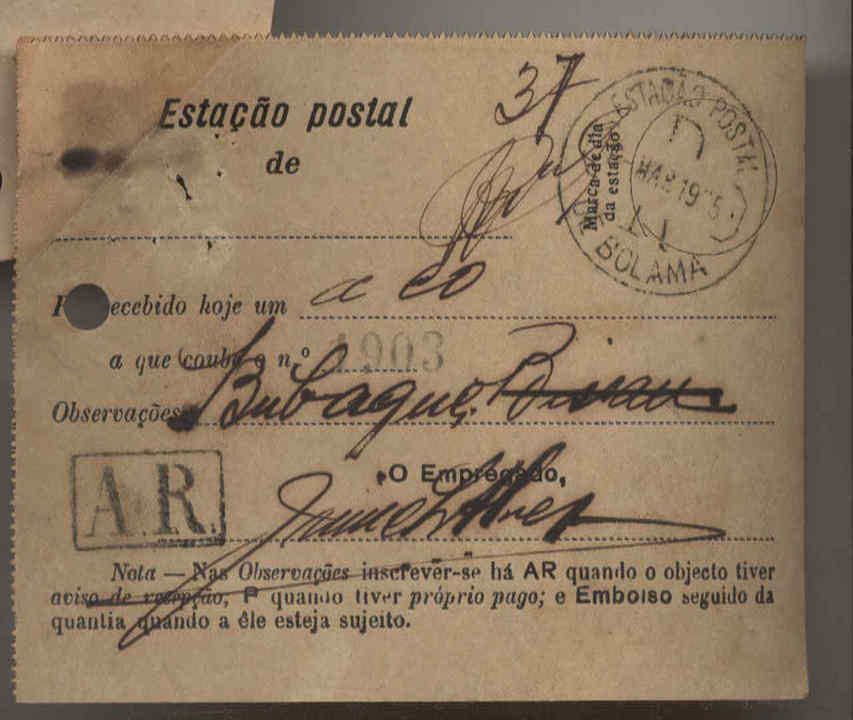 37
Estação postal
de
ESTAÇÃO POSTAL
Marca de dia
da estação
MAR 19
BOLAMA
Recebido hoje um
a que coube o n.º 1903
Observações Bubaque Bissau
A.R.
O Empregado,
Nota — Nas Observações inscrever-se há AR quando o objecto tiver
aviso de recepção, P quando tiver próprio pago; e Embolso seguido da
quantia quando a êle esteja sujeito.